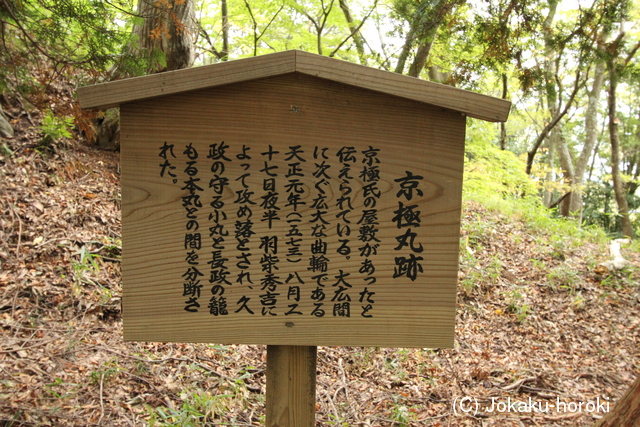 京極丸跡
京極氏の屋敷があったと
伝えられている。大広間
に次ぐ広大な曲輪である
天正元年(一五七三)八月二
十七日夜半 羽柴秀吉に
よって攻め落とされ、久
政の守る小丸と長政の籠
もる本丸との間を分断さ
れた。
(C) Jokaku-horoki